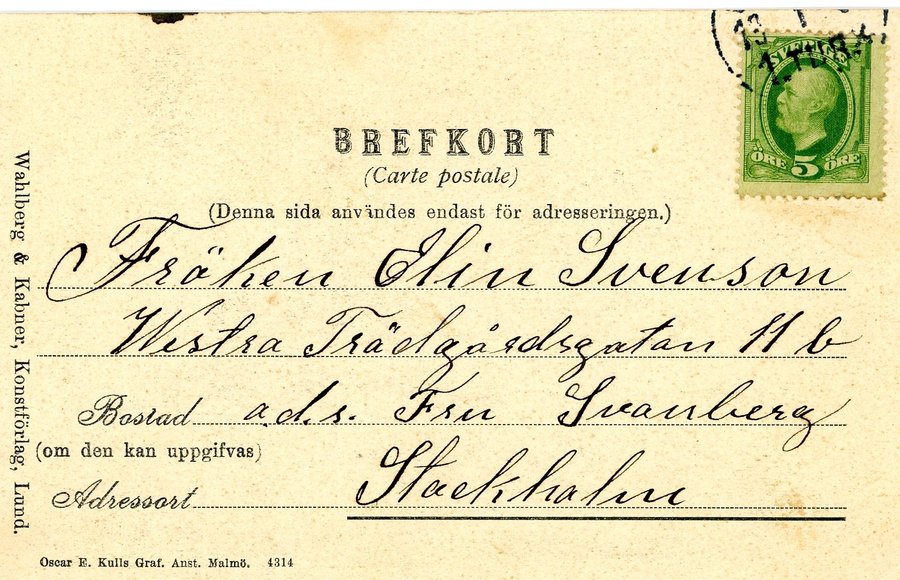 SVERIGE
ÖRE 5 ÖRE
BREFKORT
(Carte postale)
(Denna sida användes endast för adresseringen.)
Fröken Elin Svenson
Westra Trädgårdsgatan 11 b
Bostad a.d.s. Fru Svanberg
(om den kan uppgifvas)
Adressort Stockholm
Wahlberg & Kabner, Konstförlag, Lund.
Oscar E. Kulls Graf. Anst. Malmö. 4314